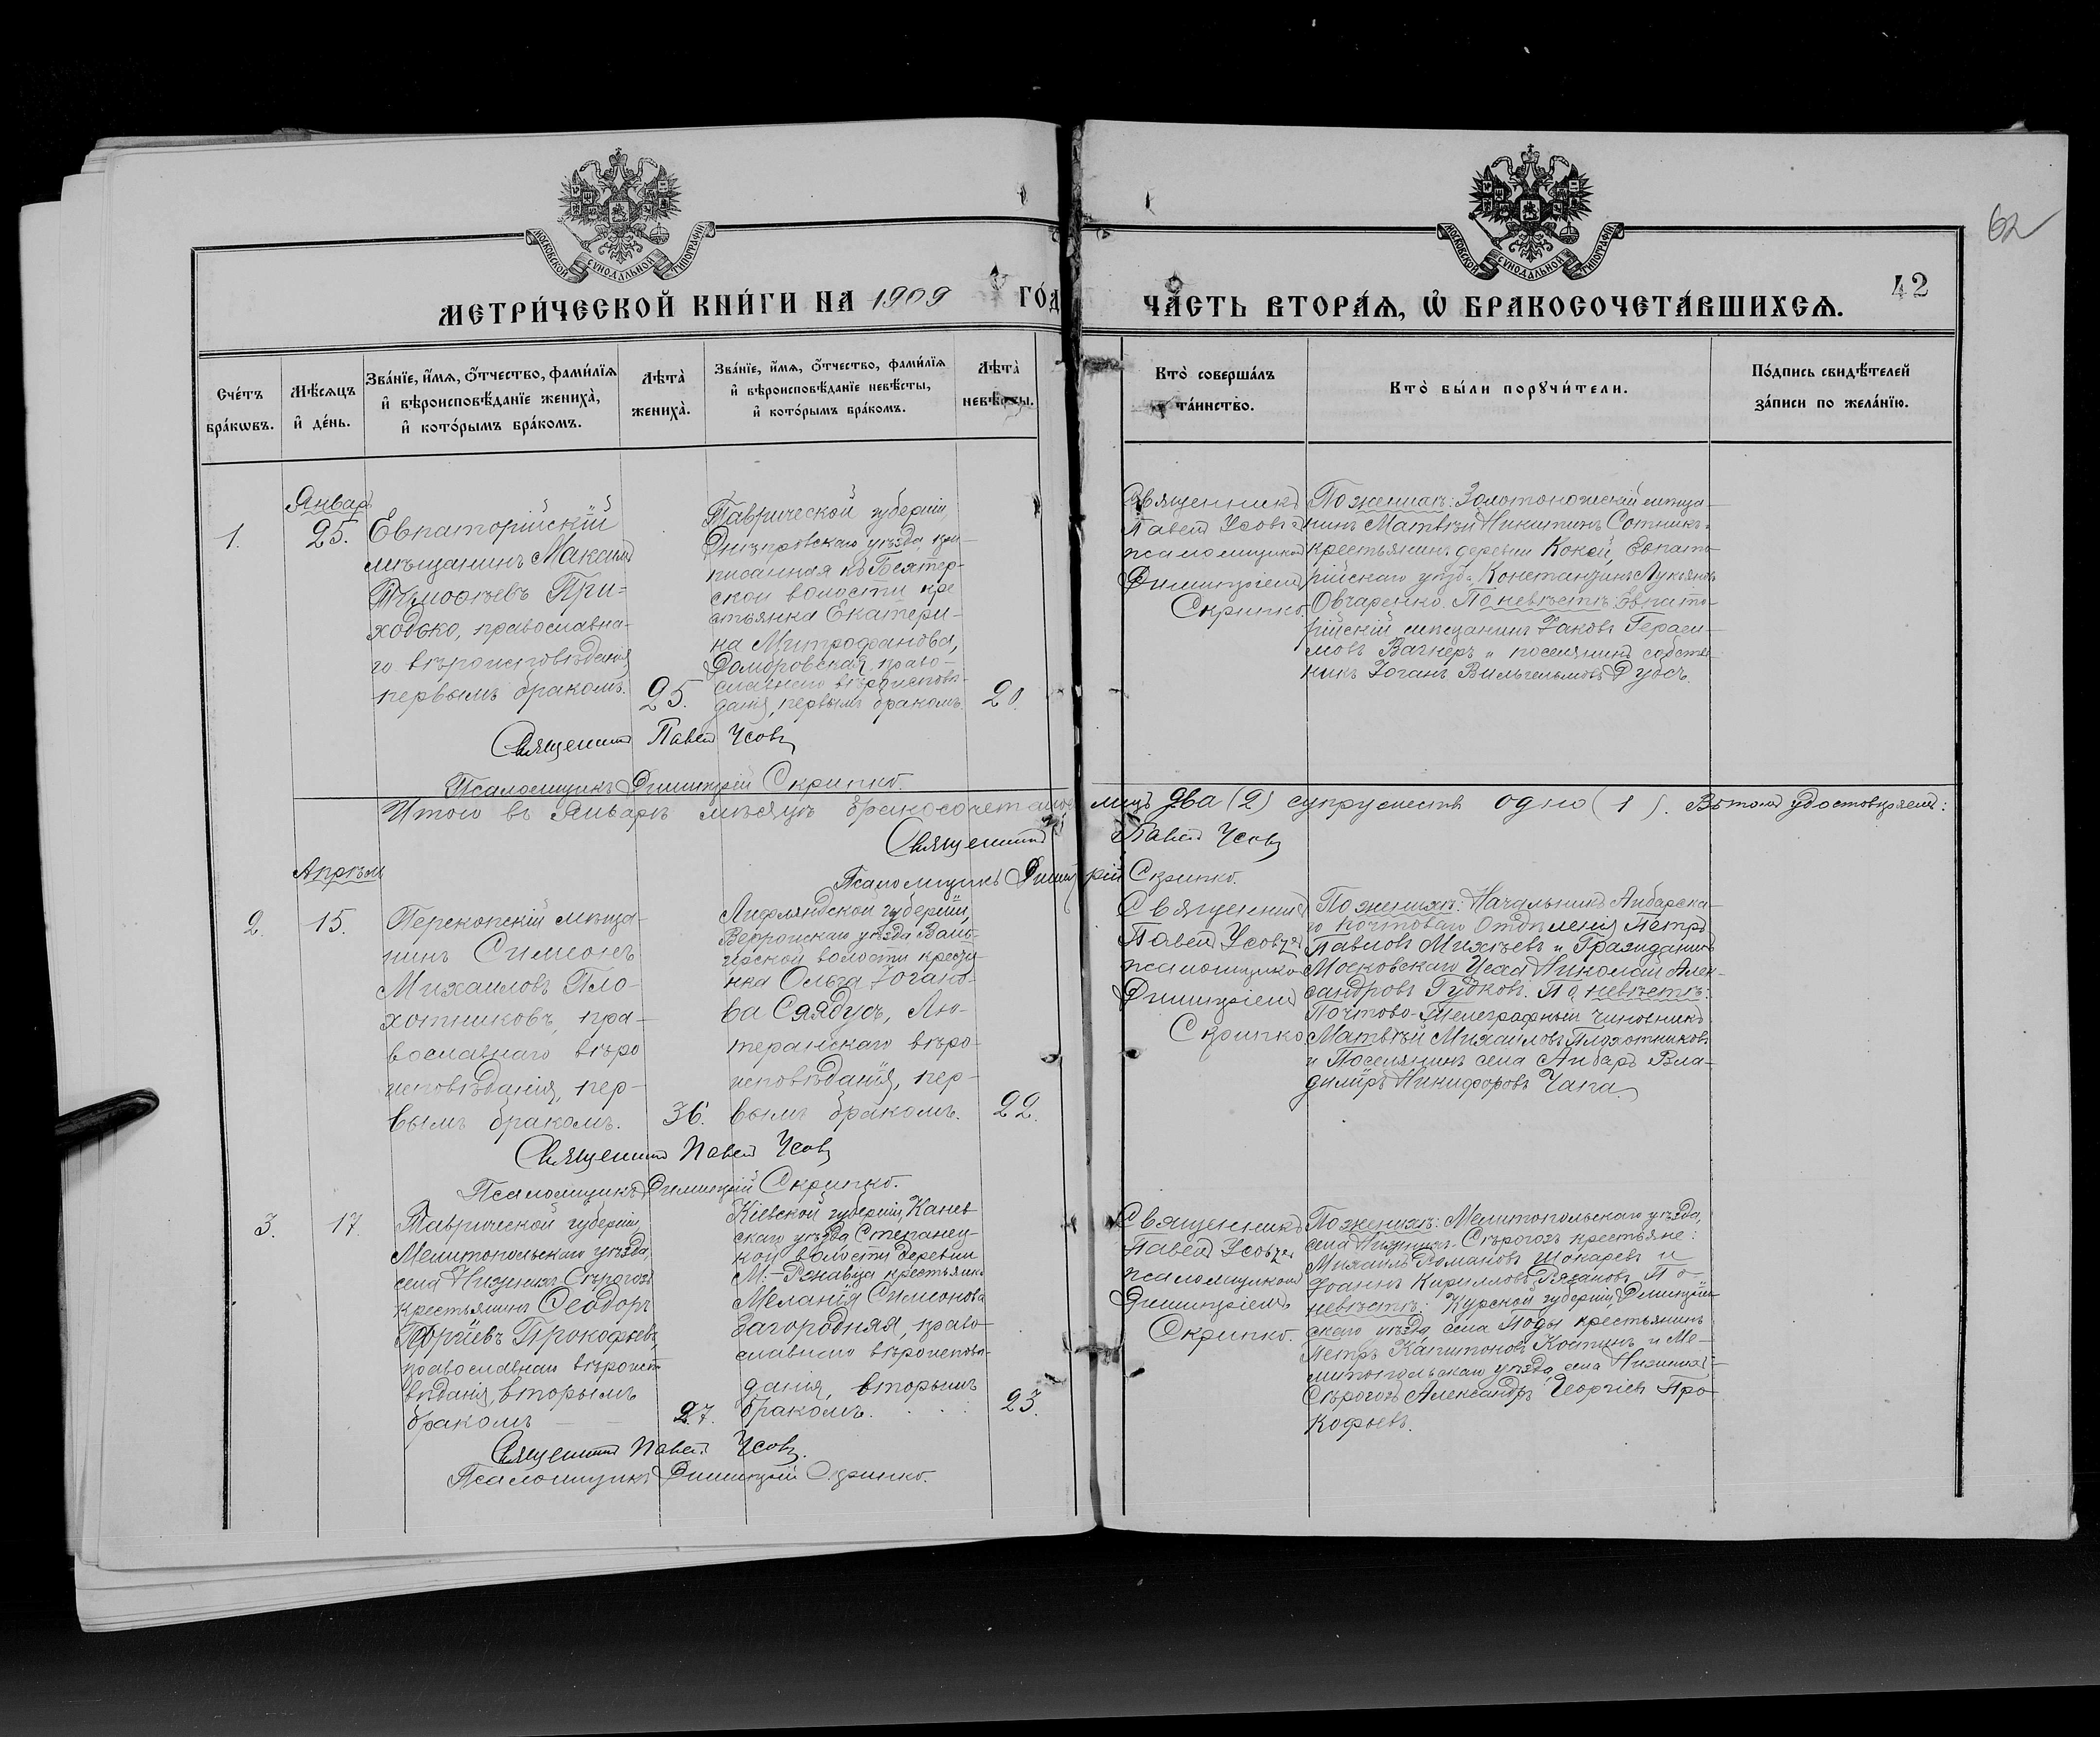 62
МОСКОВСКОЙ СУНОДАЛЬНОЙ ТИПОГРАФІИ
МОСКОВСКОЙ СУНОДАЛЬНОЙ ТИПОГРАФІИ
42
МЕТРИ́ЧЕСКОЙ КНИ́ГИ НА 1909 ГО́Д
ЧА́СТЬ ВТОРА́Ѧ, Ѡ҆ БРАКОСОЧЕТА́ВШИХСѦ.
Сче́тъ бра́кѡвъ.
Мѣ́сѧцъ и҆ де́нь.
Зва́нїе, и҆́мѧ, ѻ҆́тчество, фами́лїѧ
и҆ вѣроисповѣ́данїе жениха̀,
и҆ кото́рымъ бра́комъ.
Лѣта̀
жениха̀.
Зва́нїе, и҆́мѧ, ѻ҆́тчество, фами́лїѧ
и҆ вѣроисповѣ́данїе невѣ́сты,
и҆ кото́рымъ бра́комъ.
Лѣта̀
невѣ́сты.
Кто̀ соверша́лъ
та́инство.
Кто̀ бы́ли порꙋчи́тели.
По́дпись свидѣ́телей
за́писи по жела́нїю.
Январь
1.
25.
Евпаторійскій
мѣщанинъ Максимъ
Тимофѣевъ При-
ходько, православна-
го вѣроисповѣданія
первымъ бракомъ.
25.
Таврической губерніи,
Днѣпровскаго уѣзда, при-
писанная къ Бехтер-
ской волости кре
стьянка Екатери-
на Митрофанова,
Домбровская, право-
славнаго вѣроисповѣ-
данія, первымъ бракомъ.
20.
Священникъ
Павелъ Усовъ съ
псаломщикомъ
Димитріемъ
Скрипко
По женихѣ: Золотоношскій мѣща-
нинъ Матвѣй Никитинъ Сотникъ,
крестьянинъ деревни Кокей, Евпато-
рійскаго уѣзда, Константинъ Лукьяновъ
Овчаренко. По невѣстѣ: Евпато-
рійскій мѣщанинъ Яковъ Гераси-
мовъ Вагнеръ и поселянинъ собстве-
никъ Іоганъ Вильгельмовъ Дубсъ.
Священникъ Павелъ Усовъ
Псаломщикъ Димитрій Скрипко.
Итого въ Январѣ мѣсяцѣ бракосочетано лицъ два (2) супружествъ одно (1). Въ томъ удостовѣряемъ:
Священникъ Павелъ Усовъ
Псаломщикъ Димитрій Скрипко.
Апрѣль
2.
15.
Перекопскій мѣща-
нинъ Симеонъ
Михаиловъ Пло-
хотниковъ, пра-
вославнаго вѣро
исповѣданія, пер-
вымъ бракомъ.
36.
Лифляндской губерніи,
Верроискаго уѣзда
волости крестья-
нка Ольга Іогано-
ва Сяядусъ, Лю-
теранскаго вѣро-
исповѣданія, пер-
вымъ бракомъ.
22.
Священникъ
Павелъ Усовъ съ
псаломщикомъ
Димитріемъ
Скрипко
По женихѣ: Начальникъ Айбарска-
го почтоваго Отдѣленія Петръ
Павловъ Михѣевъ и Гражданинъ
Московскаго Уезда Николай Алек-
сандровъ Гудковъ. По невѣстѣ:
Почтово-Телеграфный чиновникъ
Матвѣй Михаиловъ Плохотниковъ
и Поселянинъ села Айбаръ Вла-
димиръ Никифоровъ Чапа.
Священникъ Павелъ Усовъ
Псаломщикъ Димитрій Скрипко.
3.
17.
Таврической губерніи,
Мелитопольскаго уѣзда,
села Нижнихъ Сѣрогозъ
крестьянинъ Ѳеодоръ
Георгіевъ Прокофьевъ,
православнаго вѣроиспо
вѣданія, вторымъ
бракомъ
27.
Кіевской губерніи, Канев
скаго уѣзда Степанец-
кой волости деревни
М.-Ржавца крестьянка
Меланія Симеонова
Загородняя, право-
славнаго вѣроисповѣ-
данія, вторымъ
бракомъ.
23.
Священникъ
Павелъ Усовъ съ
псаломщикомъ
Димитріемъ
Скрипко.
По женихѣ: Мелитопольскаго уѣзда,
села Нижнихъ-Сѣрогозъ крестьяне:
Михаилъ Романовъ Шокаревъ и
Іоаннъ Кирилловъ Рязановъ. По
невѣстѣ: Курской губерніи, Дмитрiев-
скаго уѣзда, села Поды крестьянинъ
Петръ Капитоновъ Костинъ и Ме-
литопольскаго уѣзда, села Нижнихъ-
Сѣрогозъ Александръ Георгіевъ Про-
кофьевъ.
Священникъ Павелъ Усовъ.
Псаломщикъ Димитрій Скрипко.